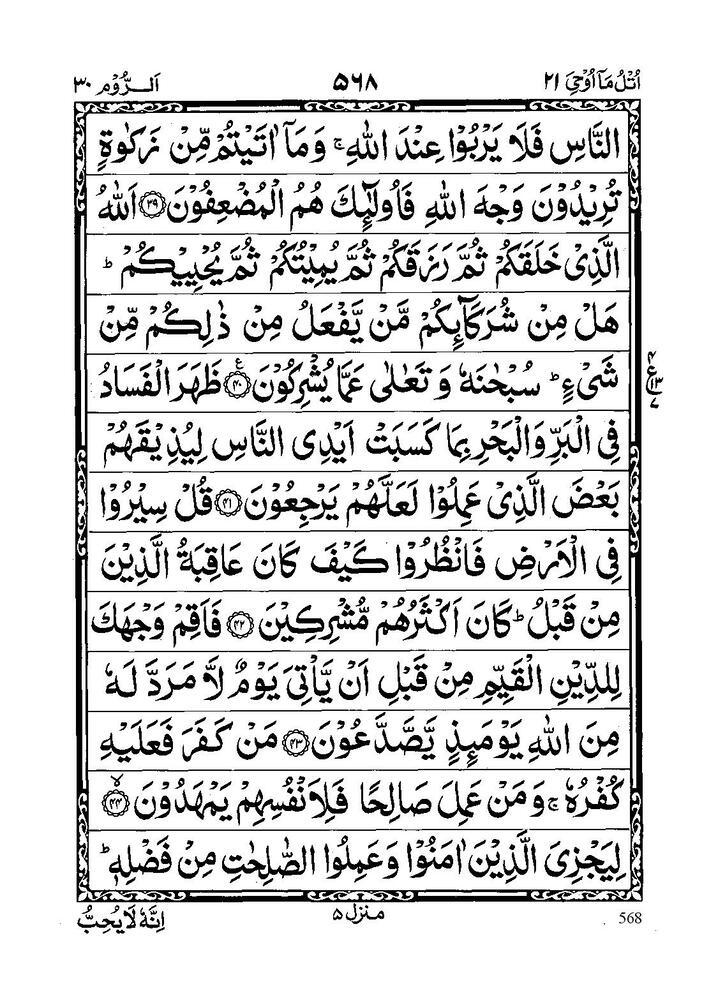 اُتْلُ مَاۤ اُوْحِیَ ۲۱
۵۶۸
اَلرُّوْم ۳۰
النَّاسِ فَلَا یَرْبُوْا عِنْدَ اللّٰهِ ۚ وَمَاۤ اٰتَیْتُمْ مِّنْ زَكٰوةٍ
تُرِیْدُوْنَ وَجْهَ اللّٰهِ فَاُولٰٓئِكَ هُمُ الْمُضْعِفُوْنَ ۝۳۹ اَللّٰهُ
الَّذِیْ خَلَقَكُمْ ثُمَّ رَزَقَكُمْ ثُمَّ یُمِیْتُكُمْ ثُمَّ یُحْیِیْكُمْ ؕ
هَلْ مِنْ شُرَكَآئِكُمْ مَّنْ یَّفْعَلُ مِنْ ذٰلِكُمْ مِّنْ
شَیْءٍ ؕ سُبْحٰنَهٗ وَ تَعٰلٰی عَمَّا یُشْرِكُوْنَ ۝۴۰ ظَهَرَ الْفَسَادُ
فِی الْبَرِّ وَالْبَحْرِ بِمَا كَسَبَتْ اَیْدِی النَّاسِ لِیُذِیْقَهُمْ
بَعْضَ الَّذِیْ عَمِلُوْا لَعَلَّهُمْ یَرْجِعُوْنَ ۝۴۱ قُلْ سِیْرُوْا
فِی الْاَرْضِ فَانْظُرُوْا كَیْفَ كَانَ عَاقِبَةُ الَّذِیْنَ
مِنْ قَبْلُ ؕ كَانَ اَكْثَرُهُمْ مُّشْرِكِیْنَ ۝۴۲ فَاَقِمْ وَجْهَكَ
لِلدِّیْنِ الْقَیِّمِ مِنْ قَبْلِ اَنْ یَّاْتِیَ یَوْمٌ لَّا مَرَدَّ لَهٗ
مِنَ اللّٰهِ یَوْمَئِذٍ یَّصَّدَّعُوْنَ ۝۴۳ مَنْ كَفَرَ فَعَلَیْهِ
كُفْرُهٗ ۚ وَمَنْ عَمِلَ صَالِحًا فَلِاَنْفُسِهِمْ یَمْهَدُوْنَ ۝۴۴ۙ
لِیَجْزِیَ الَّذِیْنَ اٰمَنُوْا وَعَمِلُوا الصّٰلِحٰتِ مِنْ فَضْلِهٖ ؕ
568
منزل ۵
اِنَّهٗ لَا یُحِبُّ